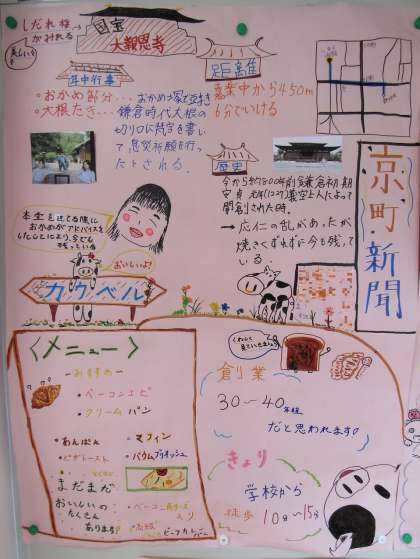 しだれ桜→
かみれる
美しい!!
国宝
大報恩寺
年中行事
・おかめ節分…おかめ塚で
・大根たき…鎌倉時代大根の
切り口に梵字を書い
て悪災祈願を行っ
たとされる。
距離
嘉楽中から450m
6分でいける
歴史
今から約800年前鎌倉初期
安貞元年(1227)義空上人によって
開創された時。
→応仁の乱があったが
焼きくずれずに今も残って
いる。
京町新聞
本堂を建てる際に
おかめがアドバイスを
したことにより、今でも
残っている
おいしいよ!
カウベル
<メニュー>
おすすめ
・ベーコンエピ
・クリームパン
・あんぱん
・マフィン
・ピザトースト
・バウムブリオッシュ
まだまだ
おいしいの
たくさん
あります!
創業
30〜40年程
だと思われます
きょり
学校から
徒歩 10分〜15分